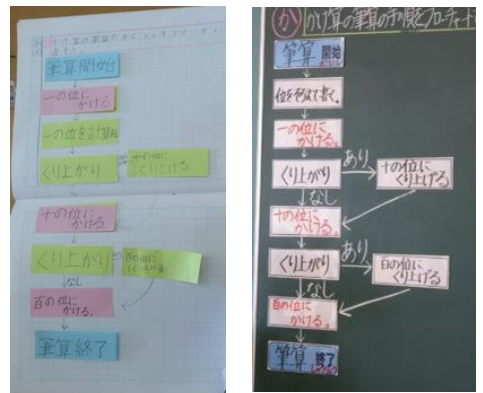 筆算開始
一の位に
かける
一の位を計算
くり上がり
十の位に
くり上げる
十の位に
かける。
くり上がり
百の位に
くり上げる
なし
百の位に
かける。
筆算終了
か
かけ算の筆算の手順をフローチャート
筆算 開始
位をそろえて書く。
一の位に
かける。
くり上がり
あり
十の位に
くり上げる
なし
十の位に
かける。
くり上がり
あり
百の位に
くり上げる
なし
百の位に
かける。
筆算 終了